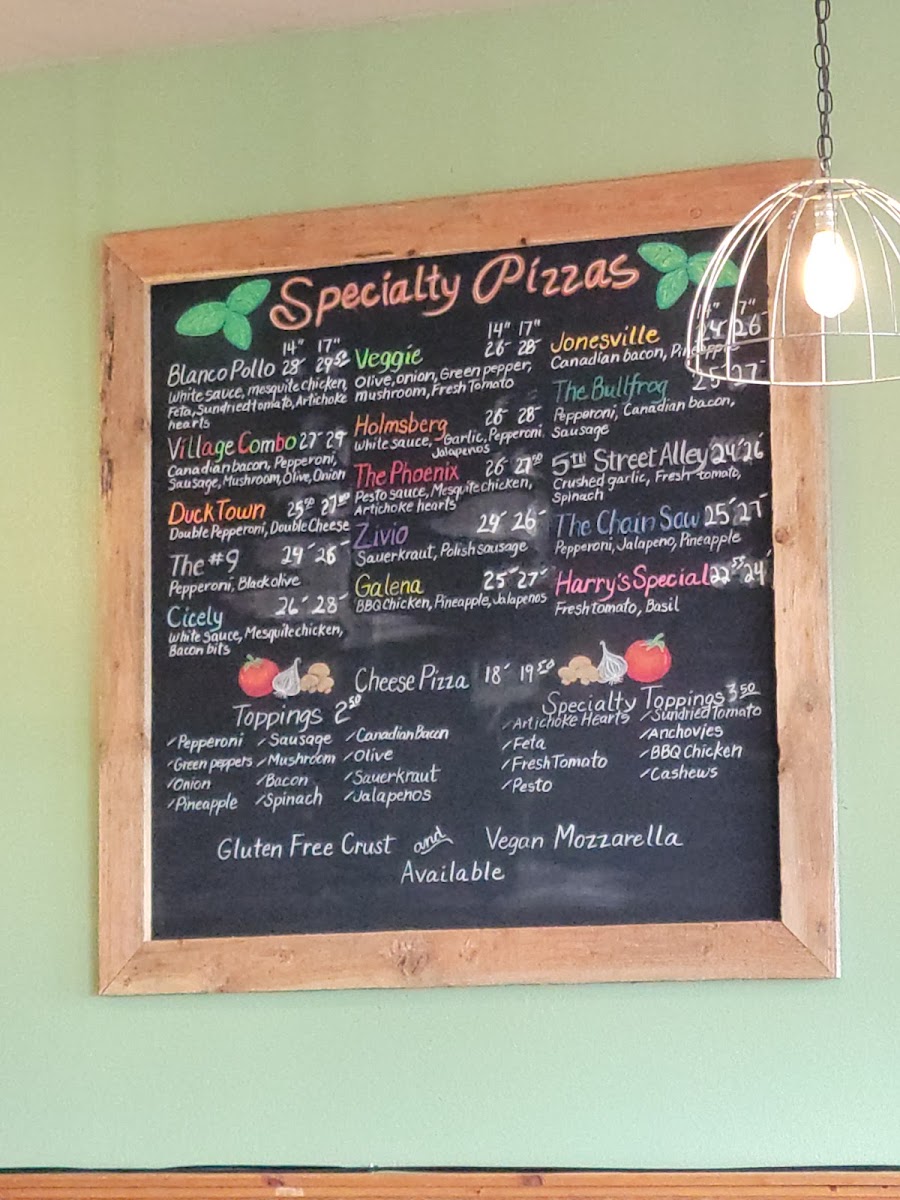 Specialty Pizzas
14" 17"
Blanco Pollo 28- 29.50
White sauce, mesquite chicken,
Feta, Sundried tomato, Artichoke
hearts
Village Combo 27- 29-
Canadian bacon, Pepperoni,
Sausage, Mushroom, Olive, Onion
Duck Town 25.50 27.50
Double Pepperoni, Double Cheese
The #9 24- 26-
Pepperoni, Black olive
Cicely 26- 28-
White sauce, Mesquite chicken,
Bacon bits
14" 17"
Veggie 26- 28-
Olive, onion, Green pepper,
mushroom, Fresh Tomato
Holmsberg 26- 28-
White sauce, Garlic, Pepperoni
Jalapenos
The Phoenix 26-
Pesto sauce, Mesquite chicken,
Artichoke hearts
Zivio 24- 26-
Sauerkraut, Polish sausage
Galena 25- 27-
BBQ Chicken, Pineapple, Jalapenos
Jonesville 24- 26-
Canadian bacon, Pineapple
The Bullfrog 25- 27-
Pepperoni, Canadian bacon,
Sausage
5TH Street Alley 24- 26
Crushed garlic, Fresh tomato,
Spinach
The Chain Saw 25- 27-
Pepperoni, Jalapeno, Pineapple
Harry's Special 24-
Fresh tomato, Basil
Cheese Pizza 18- 19.50
Toppings 2.50
✓Pepperoni ✓Sausage ✓Canadian Bacon
✓Green peppers ✓Mushroom ✓Olive
✓Onion ✓Bacon ✓Sauerkraut
✓Pineapple ✓Spinach ✓Jalapenos
Specialty Toppings 3.50
✓Artichoke Hearts ✓Sundried Tomato
✓Feta ✓Anchovies
✓Fresh Tomato ✓BBQ Chicken
✓Pesto ✓Cashews
Gluten Free Crust and Vegan Mozzarella
Available